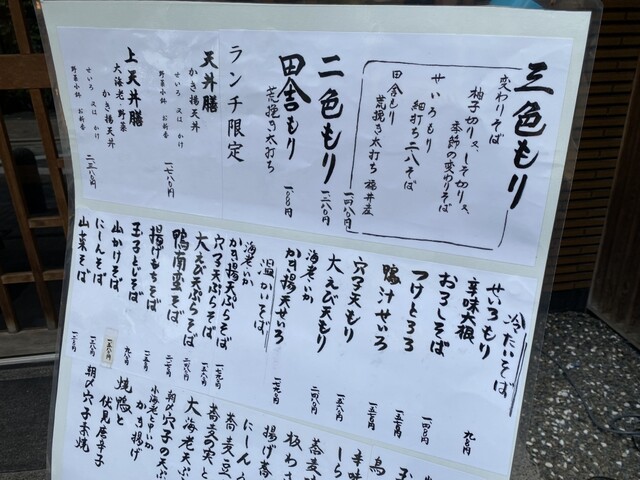 三色もり
変わりそば
柚子切り又、しそ切り又、
季節の変わりそば
せいろもり
細打ち二八そば
田舎もり
荒挽き太打ち 福井産
一四八〇円
二色もり
一二八〇円
田舎もり
荒挽き太打ち
一一〇〇円
ランチ限定
天丼膳
かき揚天丼
せいろ 又は かけ
野菜小鉢 お新香
一七八〇円
上天丼膳
大海老 野菜
天丼
せいろ 又は かけ
野菜小鉢 お新香
二二八〇円
冷たいそば
せいろもり
九八〇円
辛味大根
おろしそば
一四八〇円
つけとろろ
一五八〇円
鴨汁せいろ
穴子天もり
一五八〇円
大えび天もり
二四八〇円
海老・いか
かき揚天せいろ
一七九〇円
温かいそば
海老・いか
かき揚天ぷらそば
一七九〇円
穴子天ぷらそば
一五八〇円
大えび天ぷらそば
二四八〇円
鴨南蛮そば
揚げもちそば
玉子とじそば
山かけそば
にーしんそば
一五八〇円
山菜そば
板わさ
揚げ蕎
にーしん
蕎麦豆
蕎麦の実と
大海老天ぷ
朝〆穴子の天ぷ
小海老・小いか
かき揚げ
焼鴨と
伏見唐辛子
朝〆穴子素焼